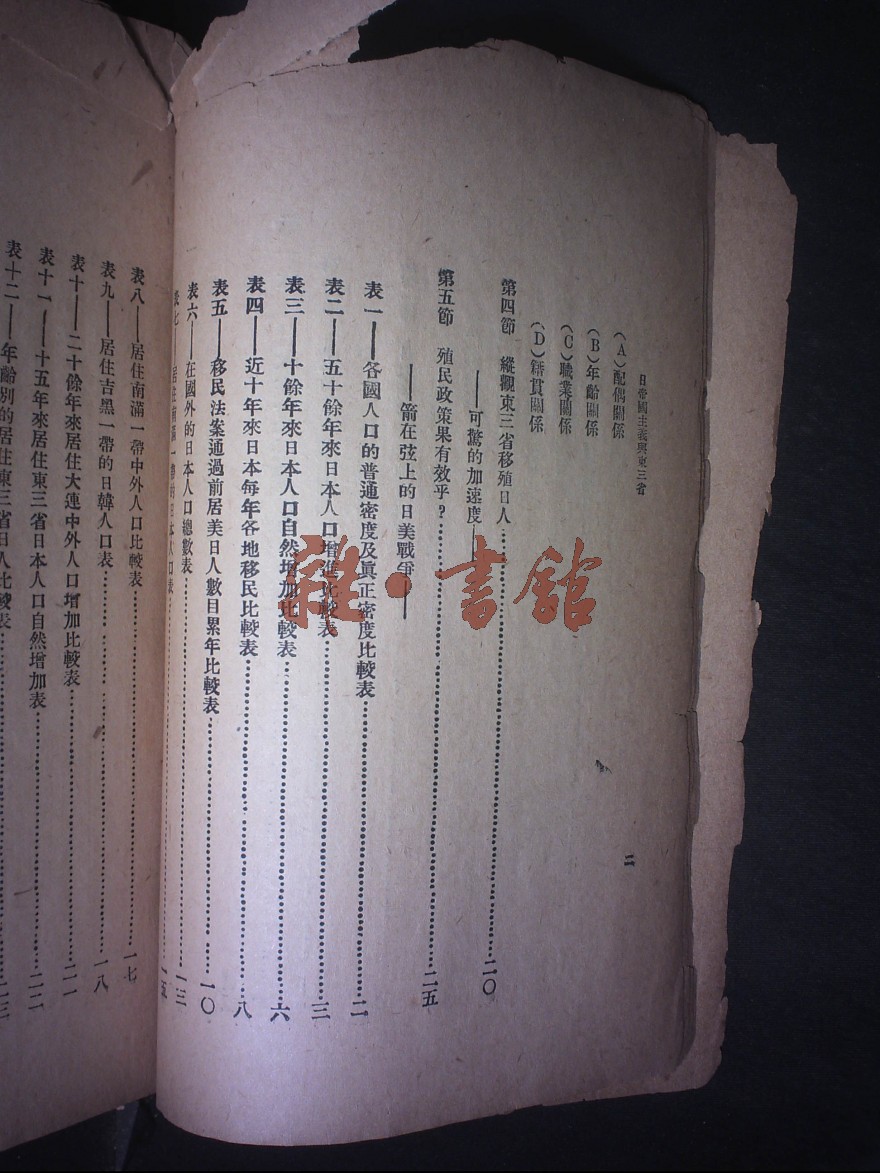 日帝國主義與東三省
二
(A)配偶關係
(B)年齡關係
(C)職業關係
(D)籍貫關係
第四節 縱觀東三省移殖日人……二〇
——可驚的加速度——
第五節 殖民政策果有效乎?……二五
——箭在弦上的日美戰爭——
表一——各國人口的普通密度及眞正密度比較表……二
表二——五十餘年來日本人口增進比較表……三
表三——十餘年來日本人口自然增加比較表……六
表四——近十年來日本每年各地移民比較表……八
表五——移民法案通過前居美日人數目累年比較表……一〇
表六——在國外的日本人口總數表……一三
表七——居住南滿一帶的日本人口表……一五
表八——居住南滿一帶中外人口比較表……一七
表九——居住吉黑一帶的日韓人口表……一八
表十——二十餘年來居住大連中外人口增加比較表……二一
表十一——十五年來居住東三省日本人口自然增加表……二二
表十二——年齡別的居住東三省日人比較表……二三
雜·書館